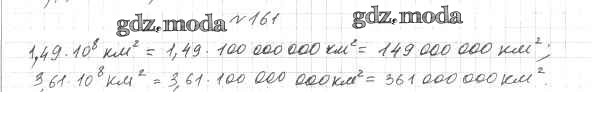 gdz.moda №161 gdz.moda
1,49·10⁸ км² = 1,49·100 000 000 км² = 149 000 000 км²;
3,61·10⁸ км² = 3,61·100 000 000 км² = 361 000 000 км².